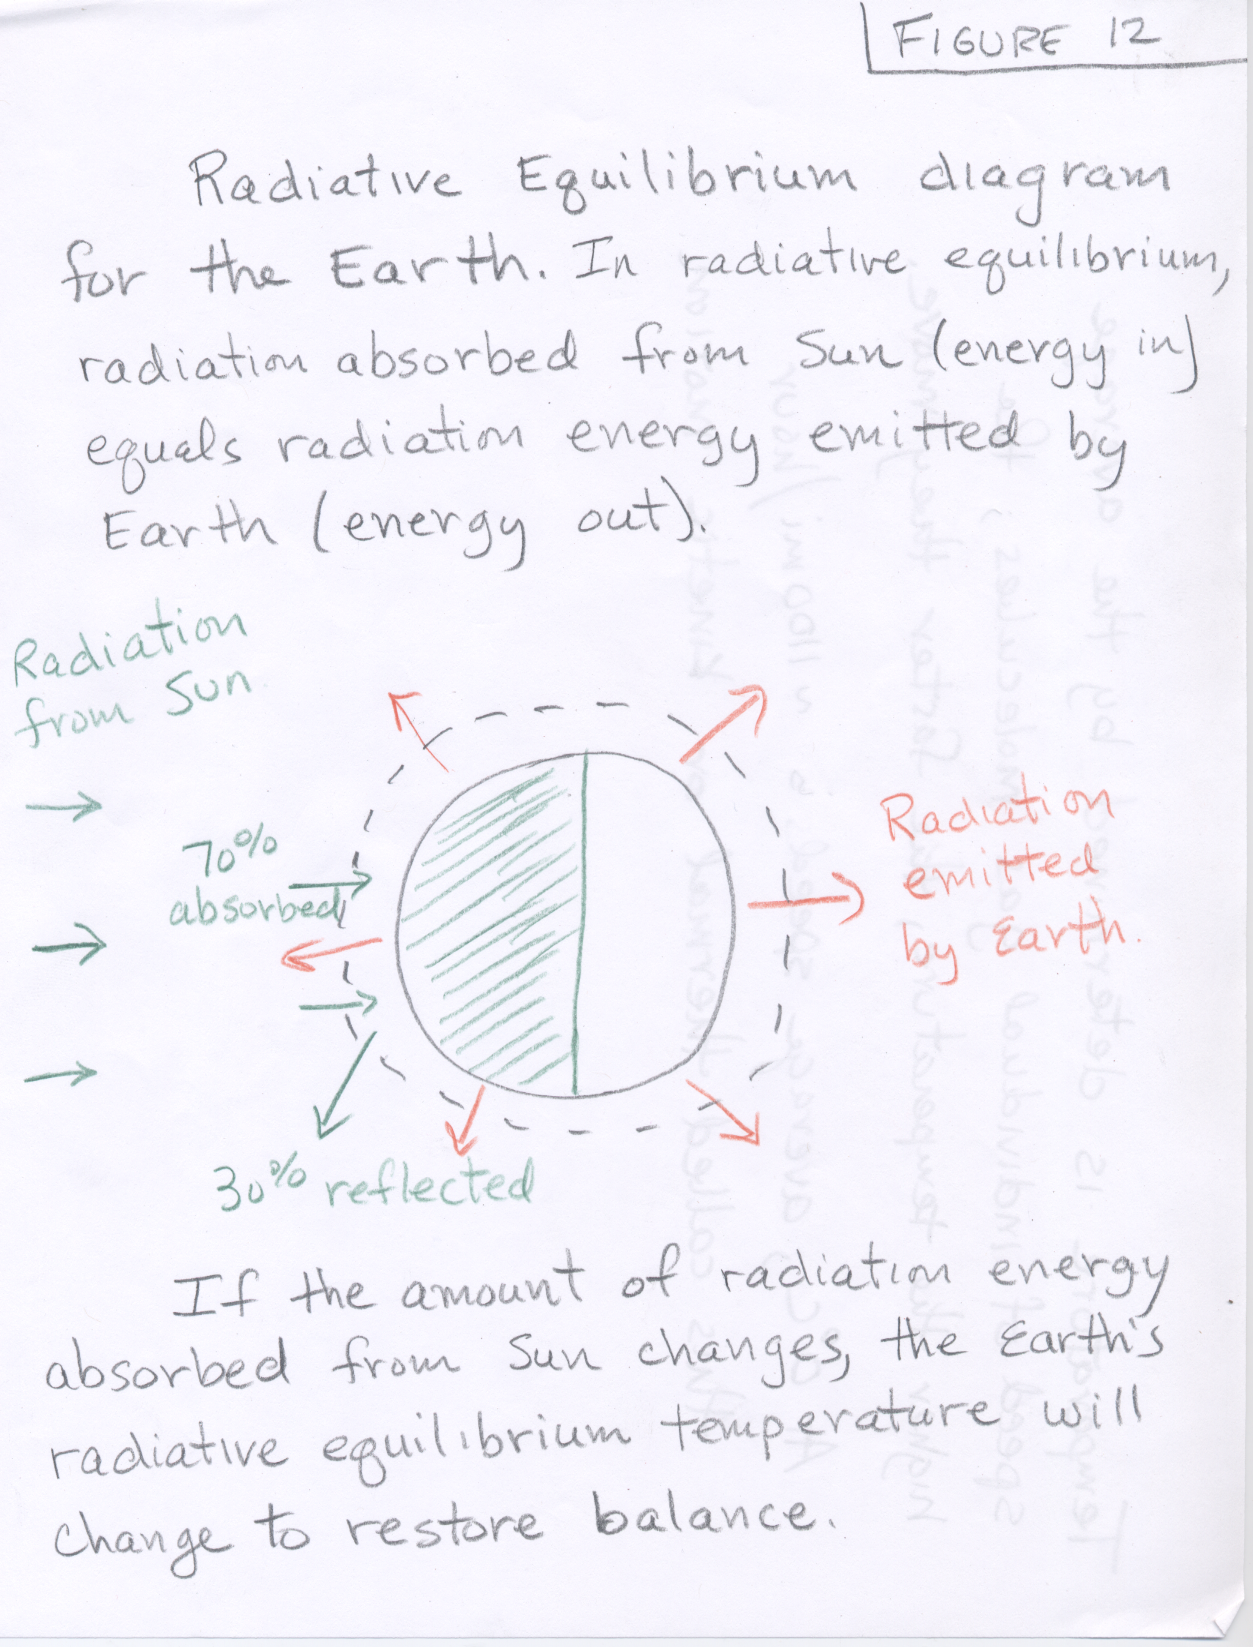 FIGURE 12
Radiative Equilibrium diagram
for the Earth. In radiative equilibrium,
radiation absorbed from Sun (energy in)
equals radiation energy emitted by
Earth (energy out).
Radiation
from Sun
70%
absorbed
Radiation
emitted
by Earth.
30% reflected
If the amount of radiation energy
absorbed from Sun changes, the Earth's
radiative equilibrium temperature will
change to restore balance.